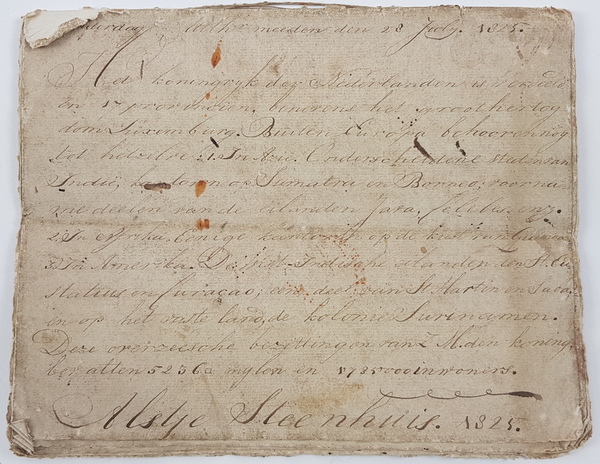 den 28 July. 1825.
Het koningryk der Nederlanden is verdeeld
in 17 provincien, binevens het groothertog
dom Luxemburg. Buiten Europa behooren nog
tot hetzelve: 1. In Azie. Onderscheidene staten van
Indië, kantoren op Sumatra en Borneo; voorna
me deelen van de eilanden Java, Selebis, enz.
2. In Afrika. Eenige kantoren op de kust van Guinea
3. In Amerika. De West-Indische eilanden den St. Eu
statius en Curacao; een deel van St. Martin en Saba,
en op het vaste land, de kolonie Surinamen.
Deze overzeesche bezittingen van Z. M. den koning,
bevatten 5236 mylen in 1785000 inwoners.
Alstje Steenhuis. 1825.